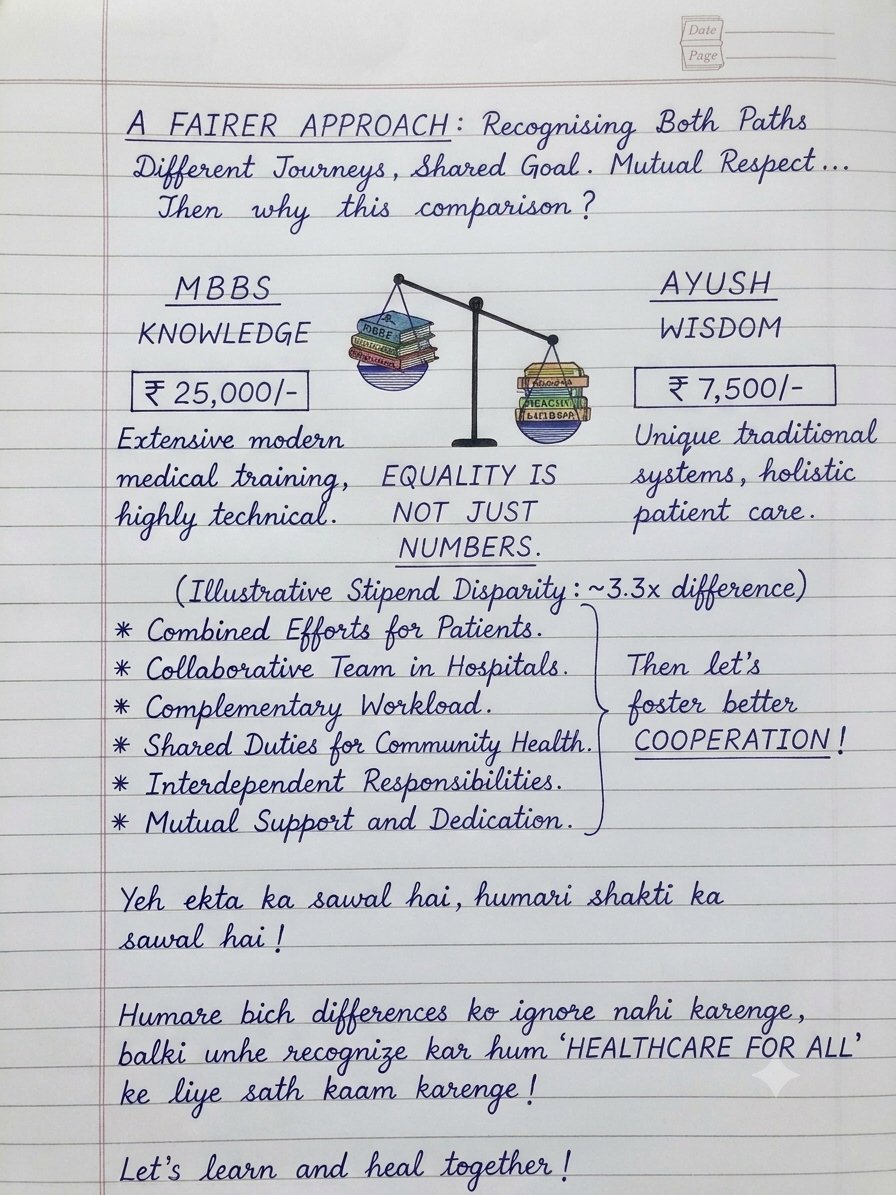 Date
Page
A FAIRER APPROACH: Recognising Both Paths
Different Journeys, Shared Goal. Mutual Respect...
Then why this comparison?
MBBS
KNOWLEDGE
₹ 25,000/-
Extensive modern
medical training,
highly technical.
EQUALITY IS
NOT JUST
NUMBERS.
AYUSH
WISDOM
₹ 7,500/-
Unique traditional
systems, holistic
patient care.
(Illustrative Stipend Disparity: ~3.3x difference)
* Combined Efforts for Patients.
* Collaborative Team in Hospitals.
* Complementary Workload.
* Shared Duties for Community Health.
* Interdependent Responsibilities.
* Mutual Support and Dedication.
Then let's
foster better
COOPERATION!
Yeh ekta ka sawal hai, humari shakti ka
sawal hai!
Humare bich differences ko ignore nahi karenge,
balki unhe recognize kar hum 'HEALTHCARE FOR ALL'
ke liye sath kaam karenge!
Let's learn and heal together!